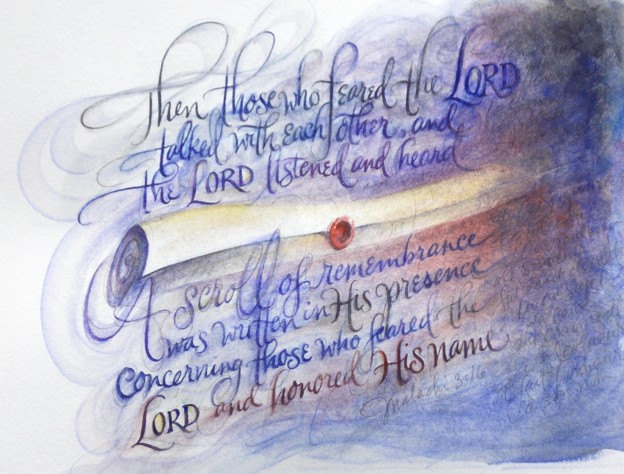 Then those who feared the LORD
talked with each other, and
the LORD listened and heard
A scroll of remembrance
was written in His presence
concerning those who feared the
LORD and honored His name
Malachi 3:16